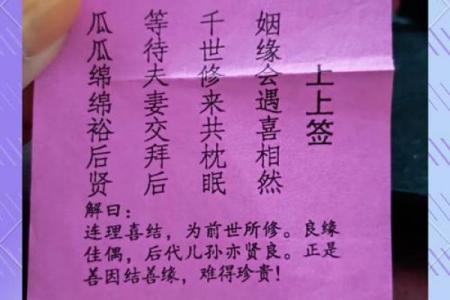 上上签
姻缘会遇喜相然
千世修来共枕眠
等待夫妻交拜后
瓜瓜绵绵裕后贤
解曰：
连理喜结，为前世所修。良缘
佳偶，后代儿孙亦贤良。正是
善因结善缘，难得珍贵！